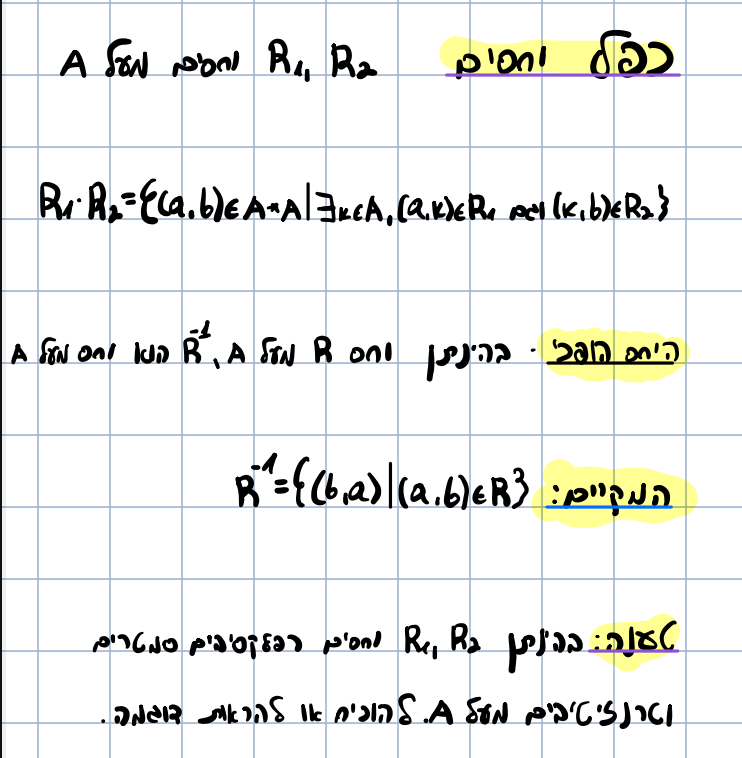 כפל יחסים R₁, R₂ יחסים מעל A
R₁·R₂={(a,b)∈A×A|∃k∈A,(a,k)∈R₁ וגם (k,b)∈R₂}
היחס הופכי · בהינתן יחס R מעל A, R⁻¹ הוא יחס מעל A
המקיים: R⁻¹={(b,a)|(a,b)∈R}
טענה: בהינתן R₁, R₂ יחסים רפלקסיבים סמטרים
וטרנזיטיבים מעל A. להוכיח או להראות דוגמה.